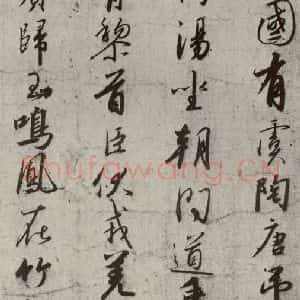 國有虞陶唐弔
湯坐朝問道垂
黎首臣伏戎羌
歸王鳴鳳在竹
Shufawang.CN